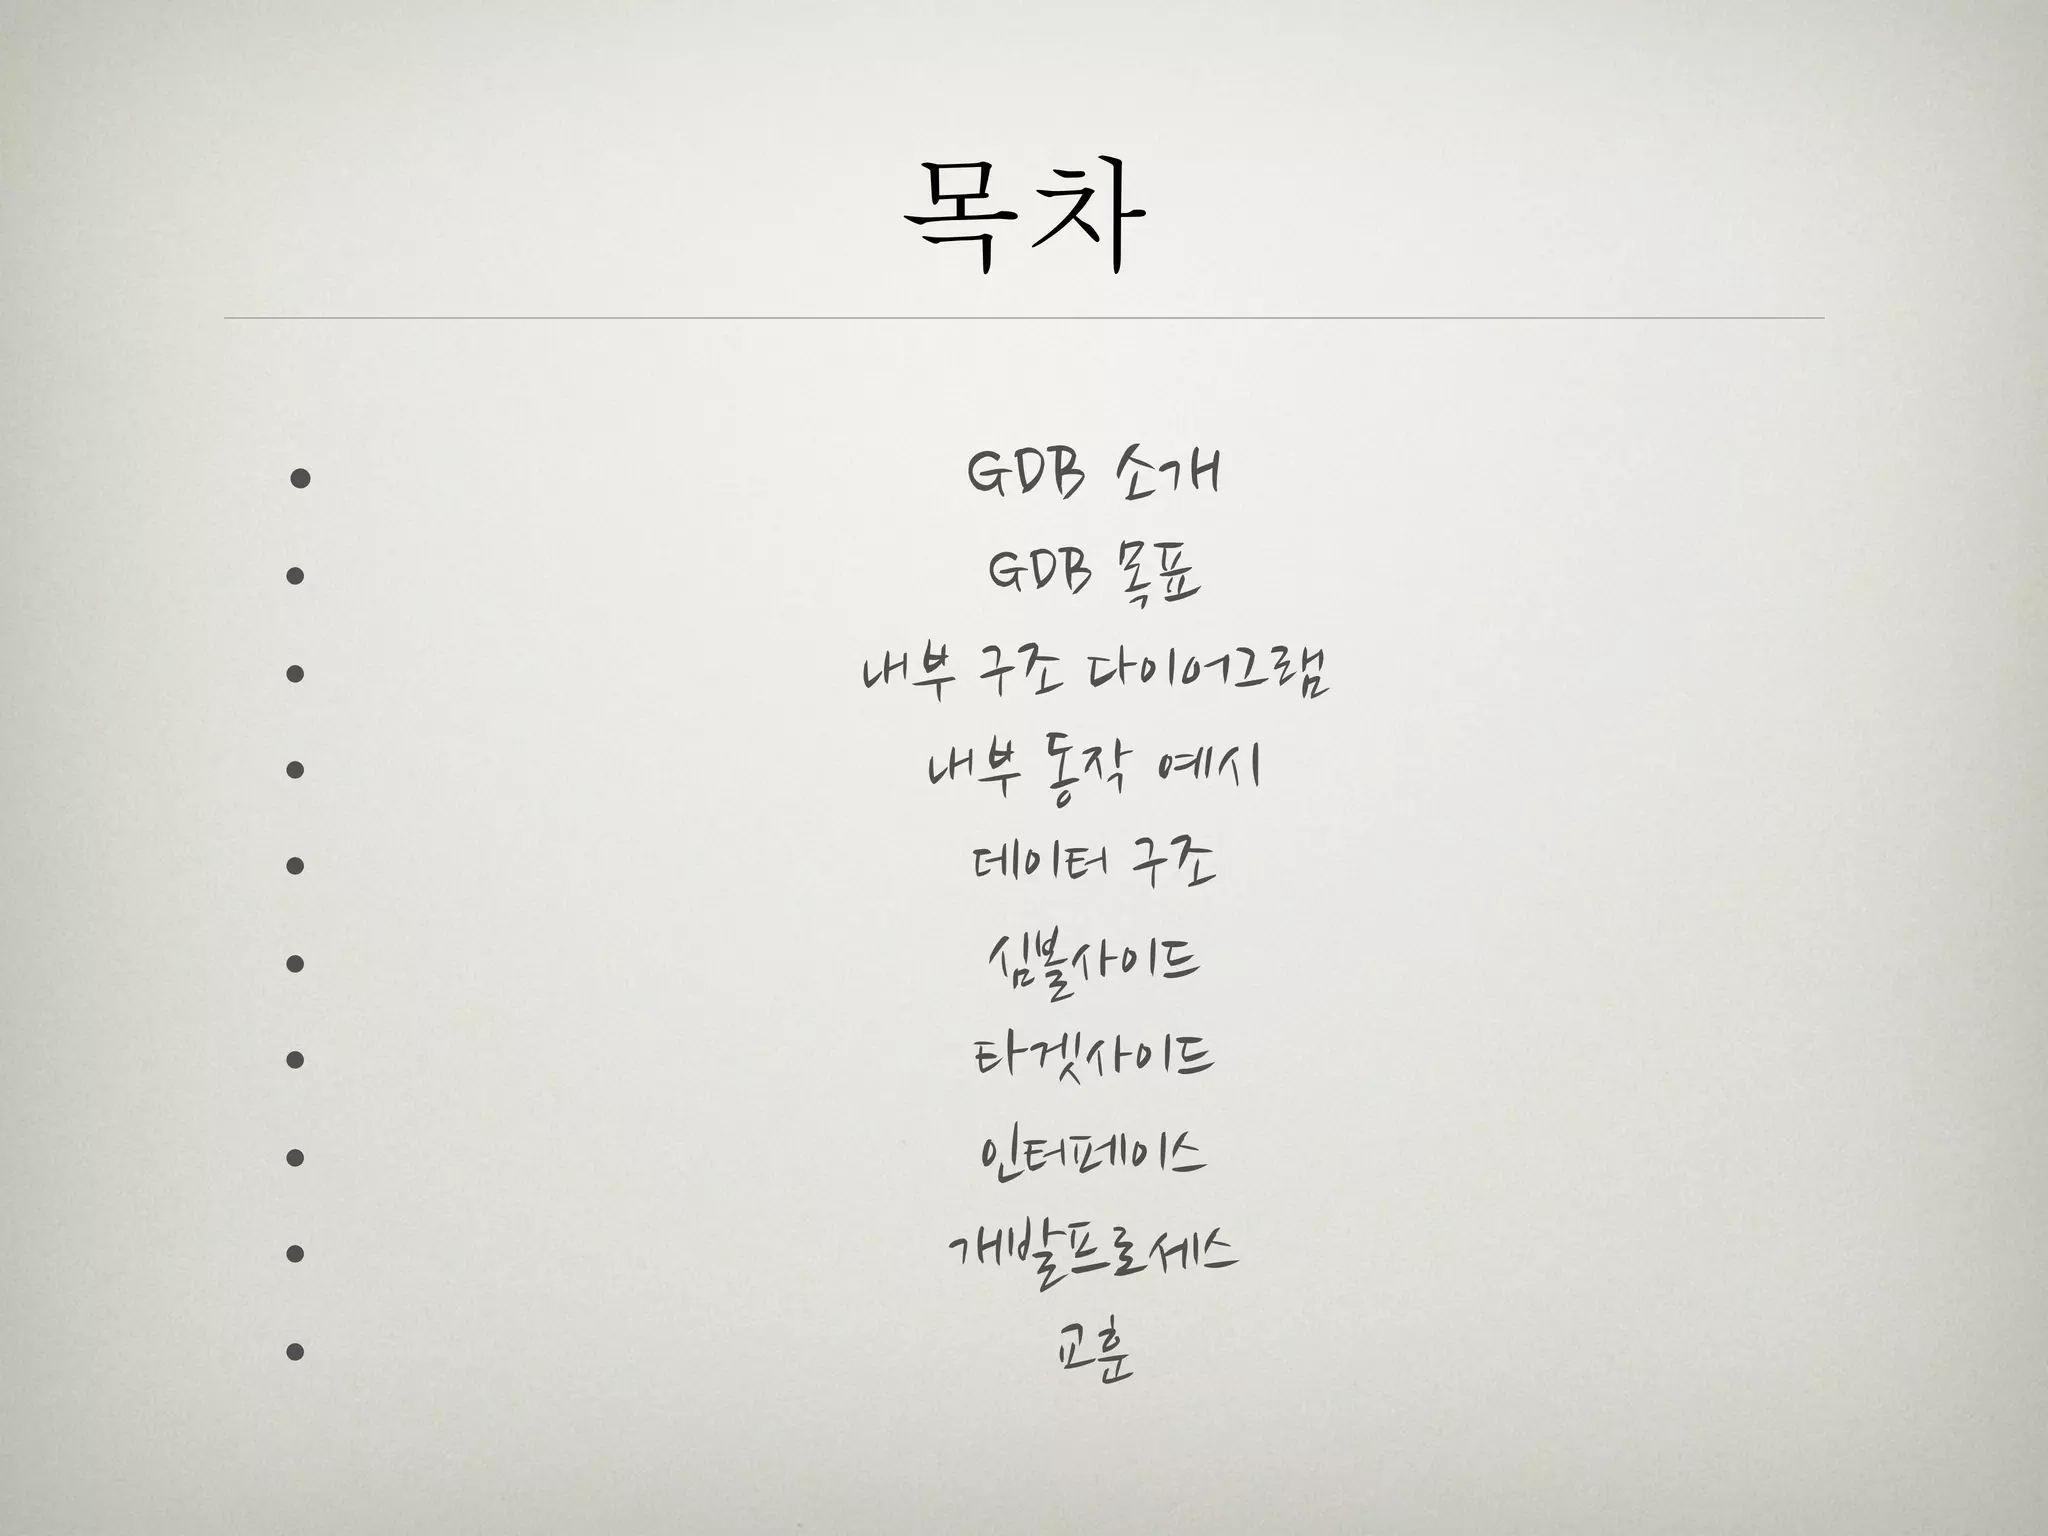 목차
• GDB 소개
• GDB 목표
• 내부 구조 다이어그램
• 내부 동작 예시
• 데이터 구조
• 심볼사이드
• 타겟사이드
• 인터페이스
• 개발프로세스
• 교훈